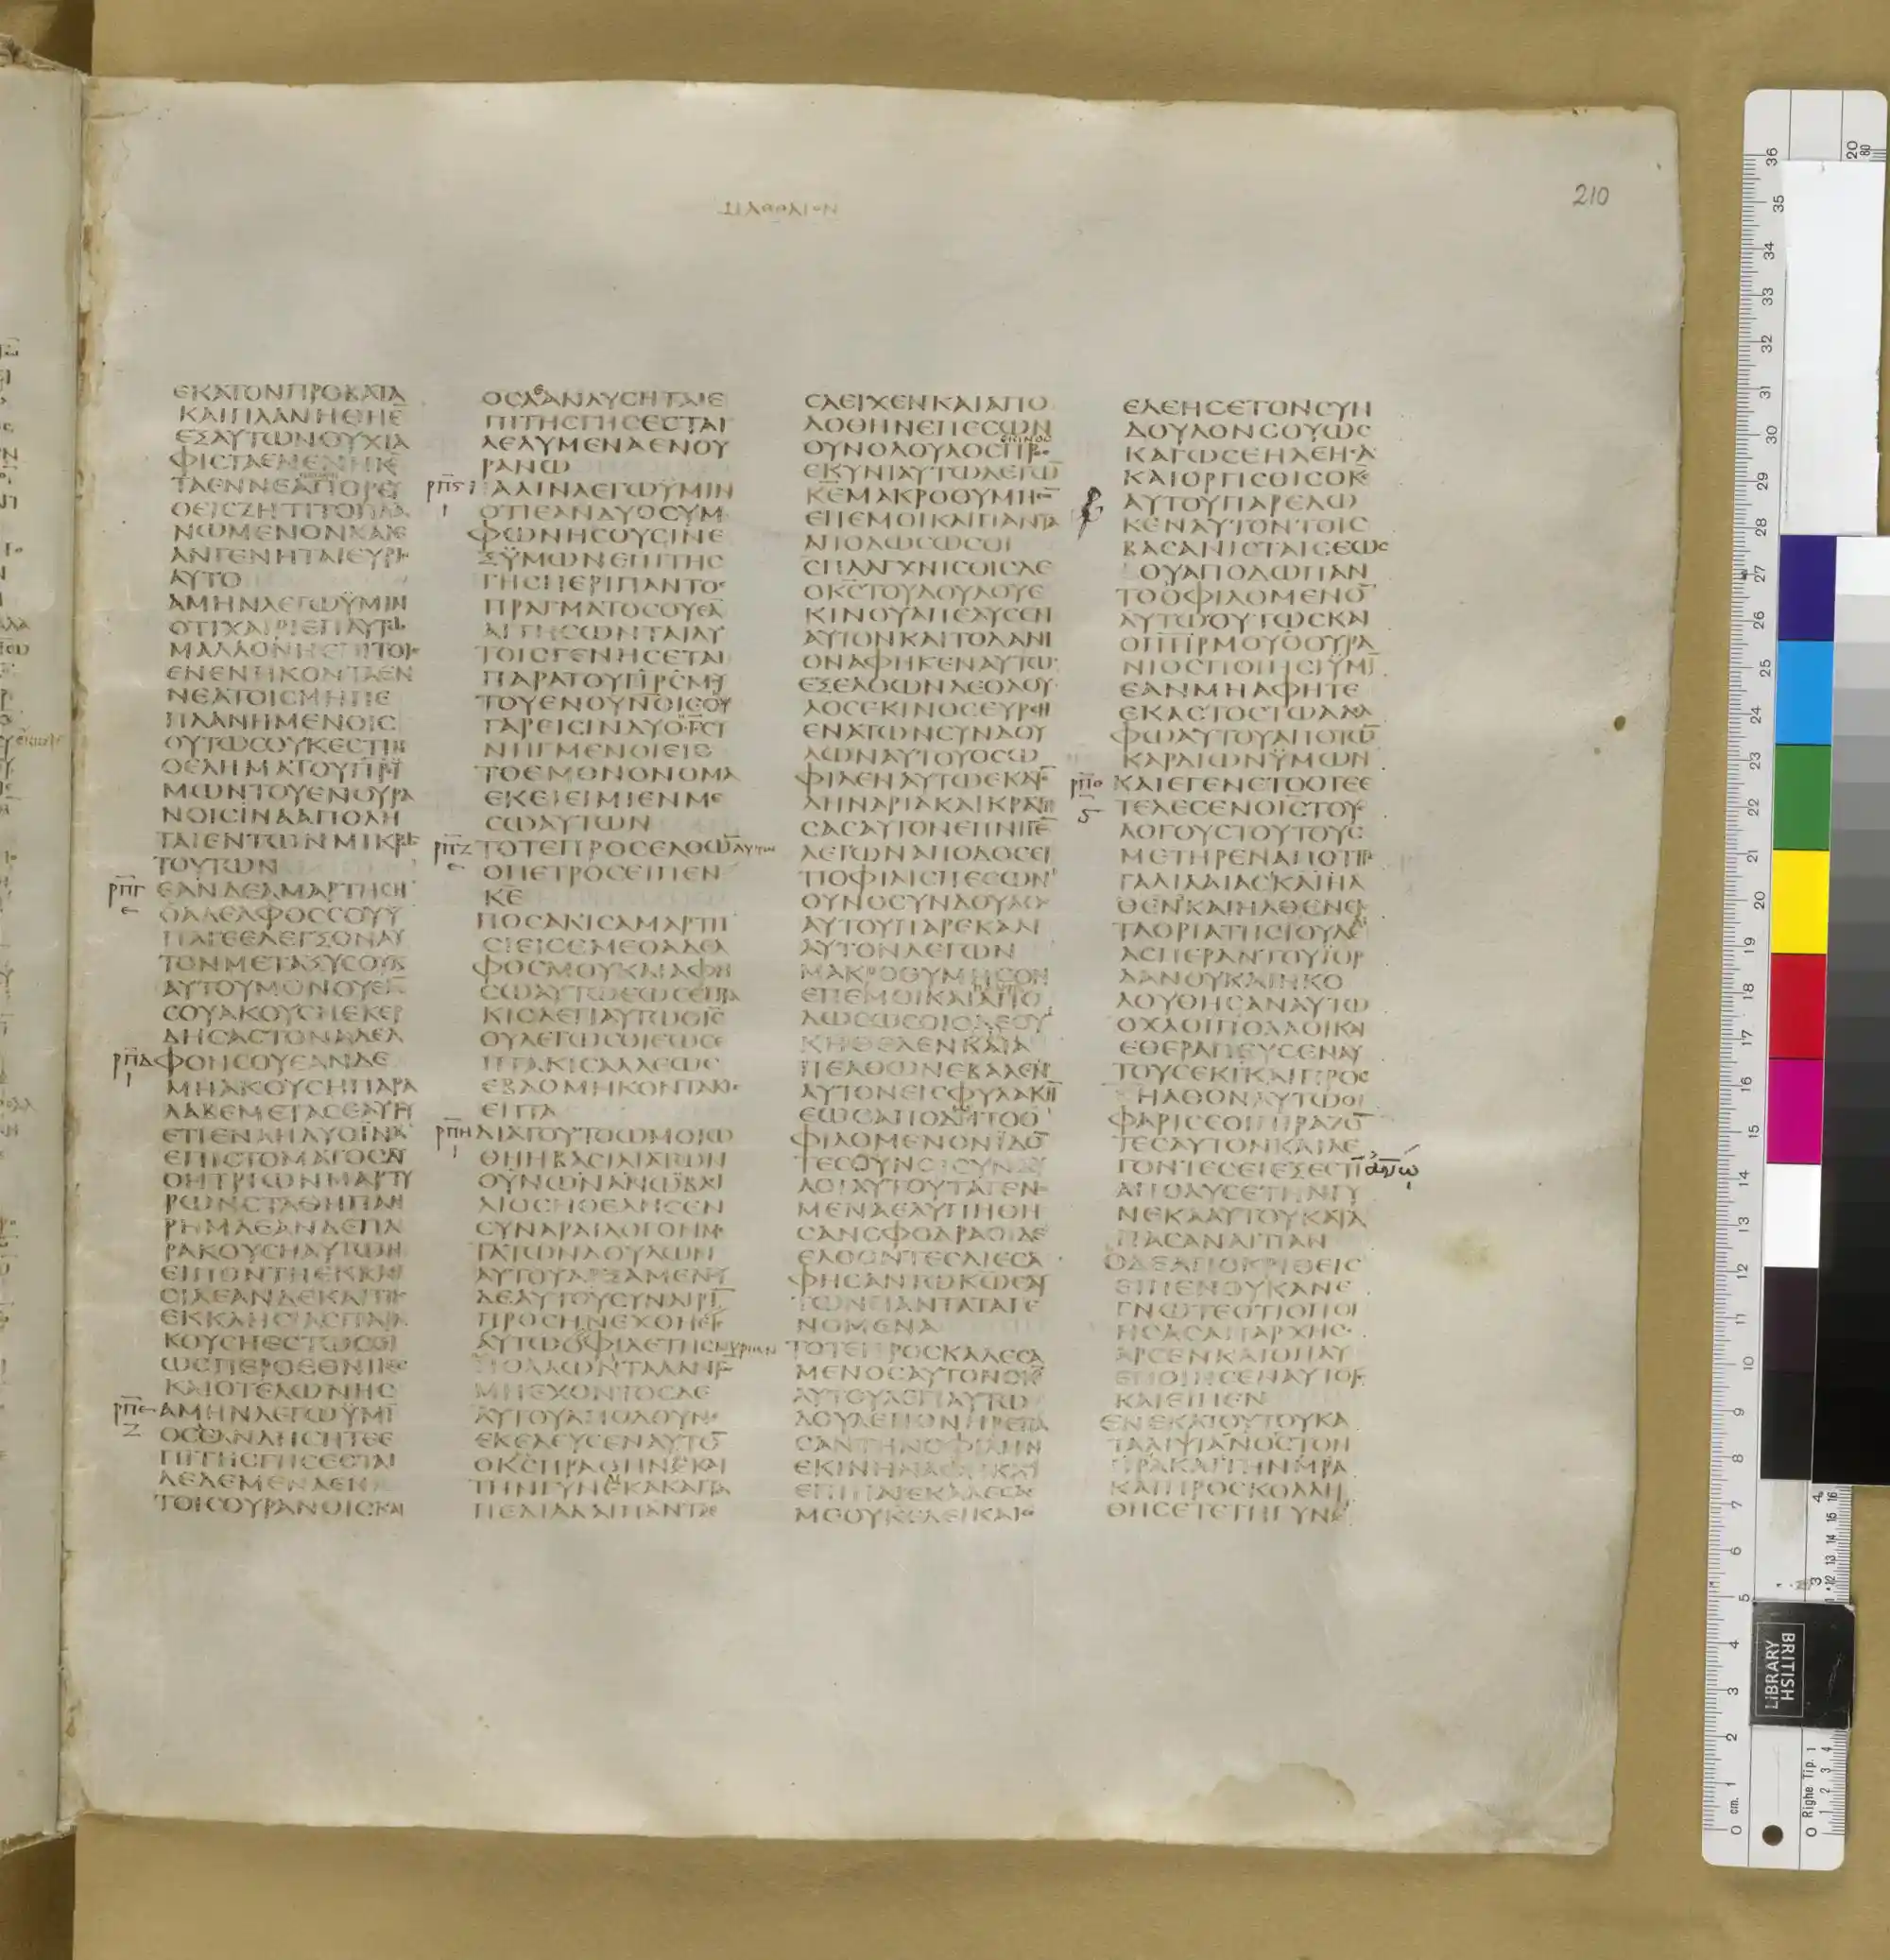 210
ΕΚΑΤΟΝΠΡΟΒΑΤΑ
ΚΑΙΠΛΑΝΗΘΗΕ̅
ΕΞΑΥΤΩΝΟΥΧΙΑ
ΦΙΣΤΑΕΝΕΝΗΚΟ̅
ΟΕΙCΖΗΤΙΤΟΠΛΑ
ΝΩΜΕΝΟΝΚΑΙΕ
ΑΝΓΕΝΗΤΑΙΕΥΡΙ
ΑΥΤΟ
ΑΜΗΝΛΕΓΩΫΜΙΝ
ΟΤΙΧΑΙΡΙΕΠΑΥΤΩ
ΜΑΛΛΟΝΗΕΠΙΤΟΙC
ΕΝΕΝΗΚΟΝΤΑΕΝ
ΝΕΑΤΟΙCΜΗΠΕ
ΠΛΑΝΗΜΕΝΟΙC
ΟΥΤΩCΟΥΚΕCΤΙΝ
ΘΕΛΗΜΑΤΟΥΠΡ̅Ϋ
ΜΩΝΤΟΥΕΝΟΥΡΑ
ΝΟΙCΙΝΑΑΠΟΛΗ
ΤΑΙΕΝΤΩΝΜΙΚΡΩ
ΤΟΥΤΩΝ
ρπγ
ΕΑΝΔΕΑΜΑΡΤΗCΗ
ΟΑΔΕΛΦΟCCΟΥΫ
ΠΑΓΕΕΛΕΓΞΟΝΑΥ
ΤΟΝΜΕΤΑΞΥCΟΥΚ
ΑΥΤΟΥΜΟΝΟΥΕΑ̅
CΟΥΑΚΟΥCΗΕΚΕΡ
ΔΗCΑCΤΟΝΑΔΕΛ
ρπδ
ΦΟΝCΟΥΕΑΝΔΕ
ΜΗΑΚΟΥCΗΠΑΡΑ
ΛΑΒΕΜΕΤΑCΕΑΥΤΥ
ΕΤΙΕΝΑΗΔΥΟΪΝΑ
ΕΠΙCΤΟΜΑΤΟCΔΥ
ΟΗΤΡΙΩΝΜΑΡΤΥ
ΡΩΝCΤΑΘΗΠΑΝ
ΡΗΜΑΕΑΝΔΕΠΑ
ΡΑΚΟΥCΗΑΥΤΩΝ
ΕΙΠΟΝΤΗΕΚΚΛΗ
CΙΑΕΑΝΔΕΚΑΙΤΗC
ΕΚΚΛΗCΙΑCΠΑΡΑ
ΚΟΥCΗΕCΤΩCΟΙ
ΩCΠΕΡΟΕΘΝΙΚΟC
ΚΑΙΟΤΕΛΩΝΗC
ρπε
ΑΜΗΝΛΕΓΩΫΜΙ̅
ΟCΕΑΝΔΗCΗΤΕΕ
ΠΙΤΗCΓΗCΕCΤΑΙ
ΔΕΔΕΜΕΝΑΕΝ
ΤΟΙCΟΥΡΑΝΟΙCΚΑΙ
ΟCΑΑΝΛΥCΗΤΑΙΕ
ΠΙΤΗCΓΗCΕCΤΑΙ
ΛΕΛΥΜΕΝΑΕΝΟΥ
ΡΑΝΩ
ρπς
ΠΑΛΙΝΛΕΓΩΫΜΙΝ
ΟΤΙΕΑΝΔΥΟCΥΜ
ΦΩΝΗCΟΥCΙΝΕ
ΞΫΜΩΝΕΠΙΤΗC
ΓΗCΠΕΡΙΠΑΝΤΟC
ΠΡΑΓΜΑΤΟCΟΥΕΑ̅
ΑΙΤΗCΩΝΤΑΙΑΥ
ΤΟΙCΓΕΝΗCΕΤΑΙ
ΠΑΡΑΤΟΥΠΡ̅CΜΥ
ΤΟΥΕΝΟΥΝΟΙCΟΥ
ΓΑΡΕΙCΙΝΔΥΟΗΓ
ΝΗΓΜΕΝΟΙΕΙC
ΤΟΕΜΟΝΟΝΟΜΑ
ΕΚΕΙΕΙΜΙΕΝΜΕ
CΩΑΥΤΩΝ
ρπζ
ΤΟΤΕΠΡΟCΕΛΘΩ̅ΑΥΤΩ
ΟΠΕΤΡΟCΕΙΠΕΝ
ΚΕ̅
ΠΟCΑΚΙCΑΜΑΡΤΗ
CΙΕΙCΕΜΕΟΑΔΕΛ
ΦΟCΜΟΥΚΑΙΑΦΗ
CΩΑΥΤΩΕΩCΕΠΤΑ
ΚΙCΛΕΓΙΑΥΤΩΟΙC̅
ΟΥΛΕΓΩCΟΙΕΩCΕ
ΠΤΑΚΙCΑΛΛΕΩC
ΕΒΔΟΜΗΚΟΝΤΑΚΙC
ΕΠΤΑ
ρπη
ΔΙΑΤΟΥΤΟΩΜΟΙΩ
ΘΗΗΒΑCΙΛΙΑΤΩΝ
ΟΥΝΩΝΑΝΩΒΑCΙ
ΛΙΟCΗΘΕΛΗCΕΝ
CΥΝΑΡΑΙΛΟΓΟΝΜΕ
ΤΑΤΩΝΔΟΥΛΩΝ
ΑΥΤΟΥΑΡΞΑΜΕΝΥ
ΔΕΑΥΤΟΥCΥΝΑΙΡΙ̅
ΠΡΟCΗΝΕΧΘΗΕΙC
ΑΥΤΩΟΦΙΛΕΤΗCΜΥΡΙΩΝ
ΠΟΛΛΩΝΤΑΛΑΝΤΩ̅
ΜΗΕΧΟΝΤΟCΔΕ
ΑΥΤΟΥΑΠΟΔΟΥΝΑΙ
ΕΚΕΛΕΥCΕΝΑΥΤΟ̅
ΟΚC̅ΠΡΑΘΗΝΕΚΑΙ
ΤΗΝΓΥΝΕΚΑΚΑΙΤΑ
ΠΕΔΙΑΚΑΙΠΑΝΤΑΟ
CΑΕΙΧΕΝΚΑΙΑΠΟ
ΔΟΘΗΝΕΠΕCΩΝ
ΟΥΝΟΔΟΥΛΟCΕΚΙΝΟCΠΡΟC
ΕΚΥΝΙΑΥΤΩΛΕΓΩ̅
ΚΕ̅ΜΑΚΡΟΘΥΜΗCΟ̅
ΕΠΕΜΟΙΚΑΙΠΑΝΤΑ
ΑΠΟΔΩCΩCΟΙ
CΠΛΑΓΧΝΙCΘΙCΔΕ
ΟΚC̅ΤΟΥΔΟΥΛΟΥΕ
ΚΙΝΟΥΑΠΕΛΥCΕΝ
ΑΥΤΟΝΚΑΙΤΟΔΑΝΙ
ΟΝΑΦΗΚΕΝΑΥΤΩ
ΕΞΕΛΘΩΝΔΕΟΔΟΥ
ΛΟCΕΚΙΝΟCΕΥΡΕΝ
ΕΝΑΤΩΝCΥΝΔΟΥ
ΛΩΝΑΥΤΟΥΟCΩ
ΦΙΛΕΝΑΥΤΩΕΚΑΤΟ̅
ΔΗΝΑΡΙΑΚΑΙΚΡΑΤΗ
CΑCΑΥΤΟΝΕΠΝΙΓΕ̅
ΛΕΓΩΝΑΠΟΔΟCΕΙ
ΤΙΟΦΙΛΙCΠΕCΩΝ
ΟΥΝΟCΥΝΔΟΥΛΟC
ΑΥΤΟΥΠΑΡΕΚΑΛΙ
ΑΥΤΟΝΛΕΓΩΝ
ΜΑΚΡΟΘΥΜΗCΟΝ
ΕΠΕΜΟΙΚΑΙΑΠΟ
ΔΩCΩCΟΙΟΔΕΟΥ
ΚΗΘΕΛΕΝΚΑΙΑ
ΠΕΛΘΩΝΕΒΑΛΕΝ
ΑΥΤΟΝΕΙCΦΥΛΑΚΗ̅
ΕΩCΑΠΟΔΩΤΟΟ
ΦΙΛΟΜΕΝΟΝΪΔΟ̅
ΤΕCΟΥΝΟΙCΥΝΔΟΥ
ΛΟΙΑΥΤΟΥΤΑΓΕΝΟ
ΜΕΝΑΕΛΥΠΗΘΗ
CΑΝCΦΟΔΡΑΚΑΙ
ΕΛΘΟΝΤΕCΔΙΕCΑ
ΦΗCΑΝΤΩΚΩ̅ΕΑΥ
ΤΩΝΠΑΝΤΑΤΑΓΕ
ΝΟΜΕΝΑ
ΤΟΤΕΠΡΟCΚΑΛΕCΑ
ΜΕΝΟCΑΥΤΟΝΟΚC̅
ΑΥΤΟΥΛΕΓΙΑΥΤΩ
ΔΟΥΛΕΠΟΝΗΡΕΠΑ
CΑΝΤΗΝΟΦΙΛΗΝ
ΕΚΙΝΗΝΑΦΗΚΑCΟΙ
ΕΠΙΠΑΡΕΚΑΛΕCΑC
ΜΕΟΥΚΕΔΕΙΚΑΙCΕ
ΕΛΕΗCΕΤΟΝCΥΝ
ΔΟΥΛΟΝCΟΥΩC
ΚΑΓΩCΕΗΛΕΗCΑ
ΚΑΙΟΡΓΙCΘΙCΟΚC̅
ΑΥΤΟΥΠΑΡΕΔΩ
ΚΕΝΑΥΤΟΝΤΟΙC
ΒΑCΑΝΙCΤΑΙCΕΩC
ΟΥΑΠΟΔΩΠΑΝ
ΤΟΟΦΙΛΟΜΕΝΟ̅
ΑΥΤΩΟΥΤΩCΚΑΙ
ΟΠΗΡΜΟΥΟΟΥΡΑ
ΝΙΟCΠΟΙΗCΙΫΜΙ̅
ΕΑΝΜΗΑΦΗΤΕ
ΕΚΑCΤΟCΤΩΑΔΕΛ
ΦΩΑΥΤΟΥΑΠΟΤΩ̅
ΚΑΡΔΙΩΝΫΜΩΝ
ρπθ
ΚΑΙΕΓΕΝΕΤΟΟΤΕΕ
ΤΕΛΕCΕΝΟΙC̅ΤΟΥC
ΛΟΓΟΥCΤΟΥΤΟΥC
ΜΕΤΗΡΕΝΑΠΟΤΗC
ΓΑΛΙΛΑΙΑCΚΑΙΗΛ
ΘΕΝΚΑΙΗΛΘΕΝΕΙC
ΤΑΟΡΙΑΤΗCΙΟΥΔΑΙ
ΑCΠΕΡΑΝΤΟΥΪΟΡ
ΔΑΝΟΥΚΑΙΗΚΟ
ΛΟΥΘΗCΑΝΑΥΤΩ
ΟΧΛΟΙΠΟΛΛΟΙΚΑΙ
ΕΘΕΡΑΠΕΥCΕΝΑΥ
ΤΟΥCΕΚΙΚΑΙΠΡΟC
ΗΛΘΟΝΑΥΤΩΟΙ
ΦΑΡΙCΕΟΙΠΙΡΑΖΟ̅
ΤΕCΑΥΤΟΝΚΑΙΛΕ
ΓΟΝΤΕCΕΙΕΞΕCΤΙ̅
ΑΠΟΛΥCΕΤΗΝΓΥ
ΝΕΚΑΑΥΤΟΥΚΑΤΑ
ΠΑCΑΝΑΙΤΙΑΝ
ΟΔΕΑΠΟΚΡΙΘΕΙC
ΕΙΠΕΝΟΥΚΑΝΕ
ΓΝΩΤΕΟΤΙΟΠΟΙ
ΗCΑCΑΠΑΡΧΗC
ΑΡCΕΝΚΑΙΘΗΛΥ
ΕΠΟΙΗCΕΝΑΥΤΟΥC
ΚΑΙΕΙΠΕΝ
ΕΝΕΚΑΤΟΥΤΟΥΚΑ
ΤΑΛΙΨΙΑΝΟCΤΟΝ
ΠΡΑΚΑΙΤΗΝΜΡΑ
ΚΑΙΠΡΟCΚΟΛΛΗ
ΘΗCΕΤΕΤΗΓΥΝΕ
BRITISH
LIBRARY